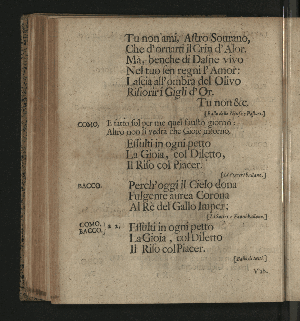 Tu non ami, Astro Sourano,
Che d'ornarti il Crin d'Alor.
Mà, benche di Dafne vivo
Nel tuo sen regni l'Amor:
Lascia all'ombra del Olivo
Rifiorir i Gigli d'Or.
Tu non &c.
COMO. E tutto sol per me quel fausto giorno:
Altro non si vedrà che Gioie intorno.
Essulti in ogni petto
La Gioia, col Diletto,
Il Riso col Piacer.
BACCO. Perch'oggi il Cielo dona
Fulgente aurea Corona
Al Re del Gallo Imper:
COMO, BACCO, } à 2. Essulti in ogni petto
La Gioia, col Diletto
Il Riso col Piacer.